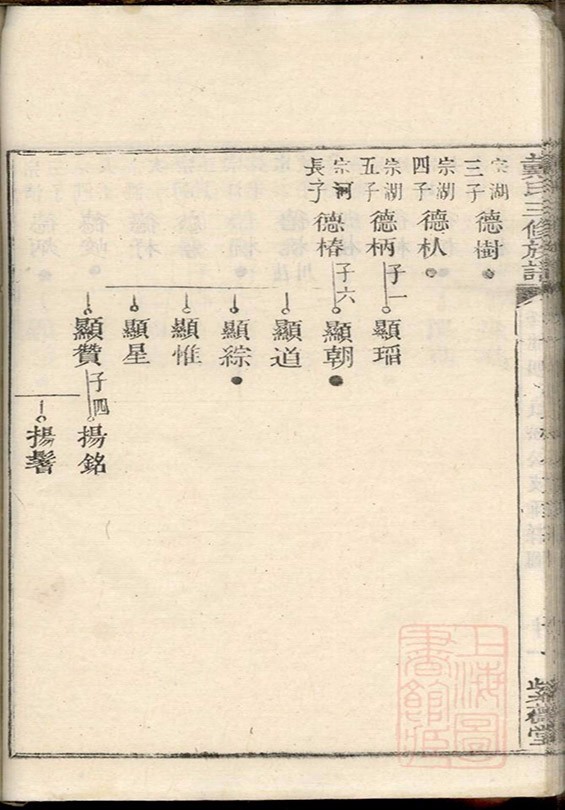 宗湖三子 德樹
宗湖四子 德朳
宗湖五子 德柄 子一 顯瑫
宗河長子 德椿 子六 顯朝
顯道
顯綜
顯惟
顯星
顯贊 子四 揚銘
揚髦
氏三修族譜
堂
上海圖書館藏